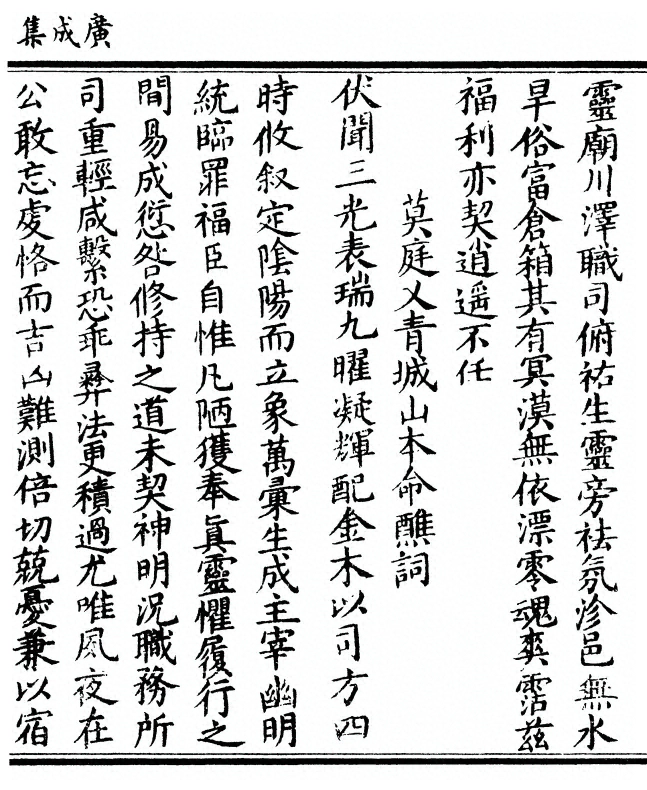 廣成集
靈廟川澤職司俯祐生靈旁祛氛沴邑無水
旱俗富倉箱其有冥漠無依漂零魂爽霑茲
福利亦契逍遙不任
莫庭乂青城山本命醮詞
伏聞三光表瑞九曜凝輝配金木以司方四
時攸叙定陰陽而立象萬彙生成主宰幽明
統臨罪福臣自惟凡陋獲奉真靈懼履行之
間易成愆咎修持之道未契神明況職務所
司重輕咸繫恐乖彝法更積過尤唯夙夜在
公敢忘虔恪而吉凶難測倍切兢憂兼以宿